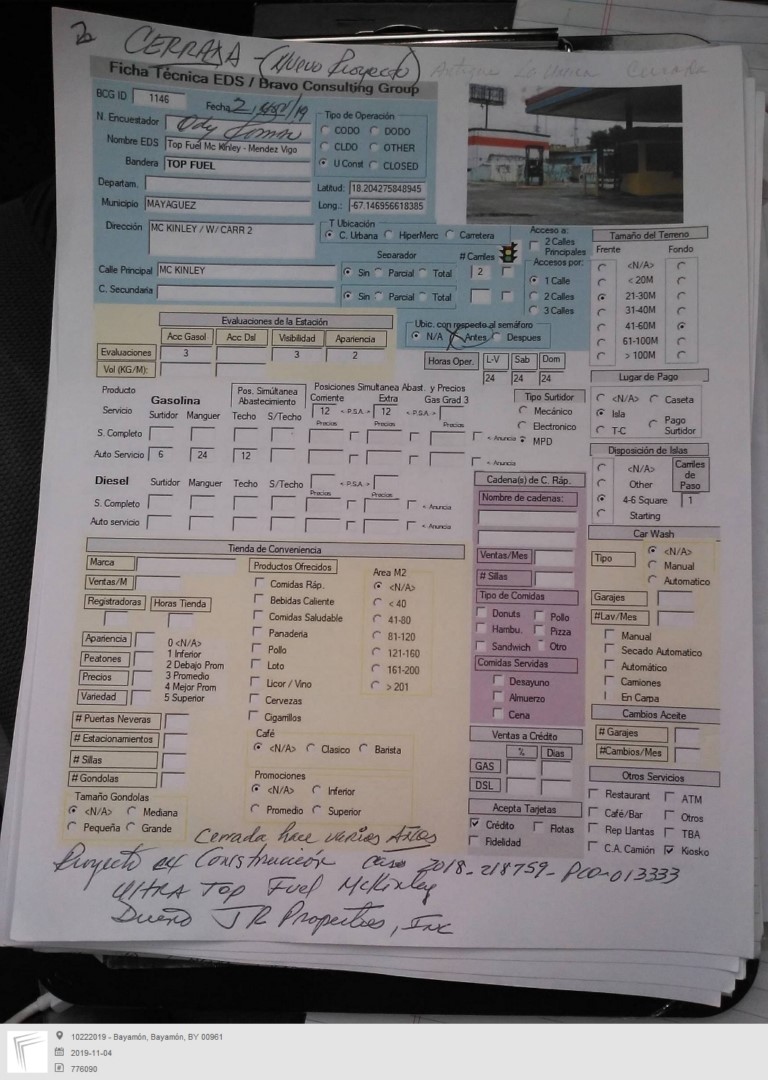 2 CERRADA - (Nuevo Proyecto) Antigua La Cerrada
Ficha Técnica EDS / Bravo Consulting Group
BCG ID 1146
Fecha 2, /19
N. Encuestador
Nombre EDS Top Fuel Mc Kinley - Mendez Vigo
Bandera TOP FUEL
Departam.
Municipio MAYAGUEZ
Dirección MC KINLEY / W/ CARR 2
Calle Principal MC KINLEY
C. Secundaria
Tipo de Operación
CODO DODO
CLDO OTHER
U Const CLOSED
Latitud: 18.204275848945
Long.: -67.146956618385
T Ubicación
C. Urbana HiperMerc Carretera
Separador # Carriles
Sin Parcial Total 2
Sin Parcial Total
Acceso a:
2 Calles Principales
Accesos por:
1 Calle
2 Calles
3 Calles
Tamaño del Terreno
Frente Fondo
<N/A>
< 20M
21-30M
31-40M
41-60M
61-100M
> 100M
Evaluaciones de la Estación
Acc Gasol Acc Dsl Visibilidad Apariencia
Evaluaciones 3 3 2
Vol (KG/M):
Ubic. con respecto al semáforo
N/A Antes Despues
Horas Oper. L-V Sab Dom
24 24 24
Lugar de Pago
<N/A> Caseta
Isla
T-C Pago Surtidor
Producto Gasolina
Pos. Simútanea Abastecimiento
Posiciones Simultanea Abast. y Precios
Corriente Extra Gas Grad 3
12 <-P.S.A-> 12 <-P.S.A->
Servicio Surtidor Manguer Techo S/Techo Precios Precios Precios
S. Completo < Anuncia
Auto Servicio 6 24 12 < Anuncia
Tipo Surtidor
Mecánico
Electronico
MPD
Disposición de Islas
<N/A>
Other
4-6 Square
Starting
Carriles de Paso
1
Diesel Surtidor Manguer Techo S/Techo <-P.S.A->
Precios Precios
S. Completo < Anuncia
Auto servicio < Anuncia
Cadena(s) de C. Ráp.
Nombre de cadenas:
Ventas/Mes
# Sillas
Tipo de Comidas
Donuts Pollo
Hambu. Pizza
Sandwich Otro
Comidas Servidas
Desayuno
Almuerzo
Cena
Car Wash
Tipo <N/A>
Manual
Automatico
Garajes
#Lav/Mes
Manual
Secado Automatico
Automático
Camiones
En Carpa
Cambios Aceite
# Garajes
#Cambios/Mes
Tienda de Conveniencia
Marca
Ventas/M
Registradoras Horas Tienda
Apariencia
Peatones
Precios
Variedad
0 <N/A>
1 Inferior
2 Debajo Prom
3 Promedio
4 Mejor Prom
5 Superior
# Puertas Neveras
# Estacionamientos
# Sillas
# Gondolas
Tamaño Gondolas
<N/A> Mediana
Pequeña Grande
Productos Ofrecidos
Comidas Ráp.
Bebidas Caliente
Comidas Saludable
Panaderia
Pollo
Loto
Licor / Vino
Cervezas
Cigarrillos
Area M2
<N/A>
< 40
41-80
81-120
121-160
161-200
> 201
Café
<N/A> Clasico Barista
Promociones
<N/A> Inferior
Promedio Superior
Ventas a Crédito
% Dias
GAS
DSL
Acepta Tarjetas
Crédito Flotas
Fidelidad
Otros Servicios
Restaurant ATM
Café/Bar Otros
Rep Llantas TBA
C.A. Camión Kiosko
Cerrada hace varios Años
Proyecto en Construcción Caso 2018-218759-PCO-013333
Ultra Top Fuel McKinley
Dueño JR Properties, Inc
10222019 - Bayamón, Bayamón, BY 00961
2019-11-04
776090